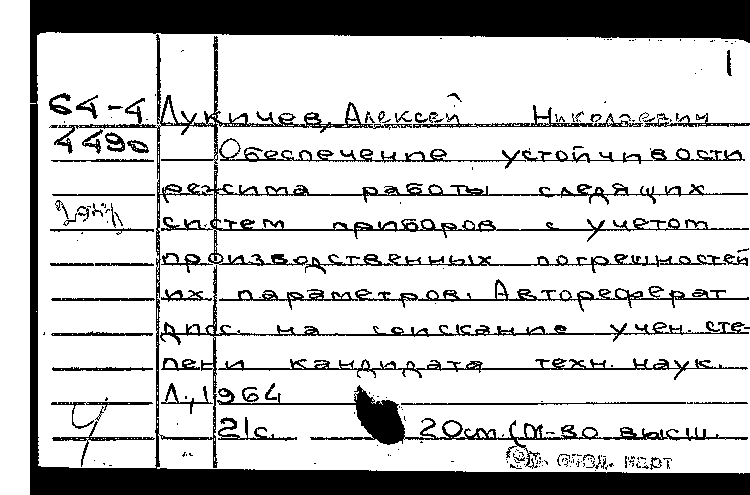 1
64-4 Лукичев, Алексей Николаевич
4490 Обеспечение устойчивости
режима работы следящих
систем приборов с учетом
производственных погрешностей
их параметров. Автореферат
дисс. на соискание учен. сте-
пени кандидата техн. наук.
Л., 1964
21с. 20см. (М-во высш.
См. след. карт